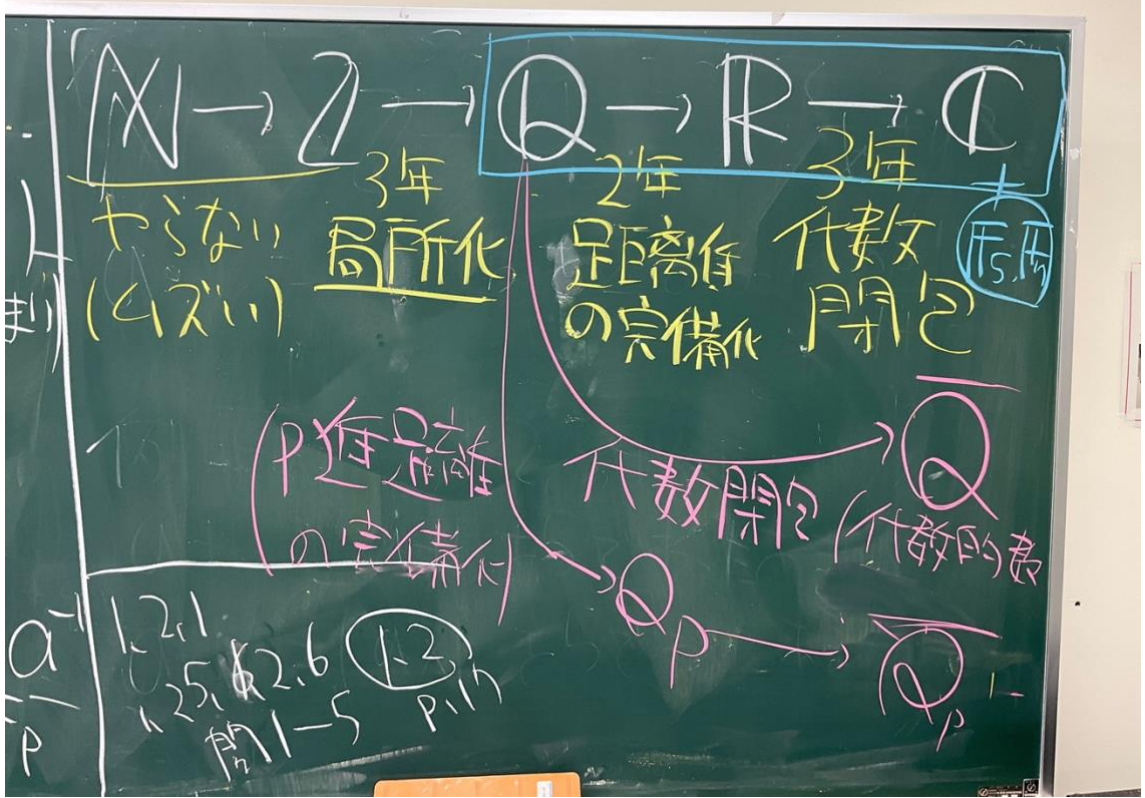 ℕ → ℤ → ℚ → ℝ → ℂ
やらない
(ムズい)
3年
局所化
2年
距離
の完備化
3年
代数
閉包
(p進距離
の完備化)
代数閉包
Q̅
(代数的数
Q_p → Q̅_p
a⁻¹
p
1.2.1
2.6
1.2
問1-5